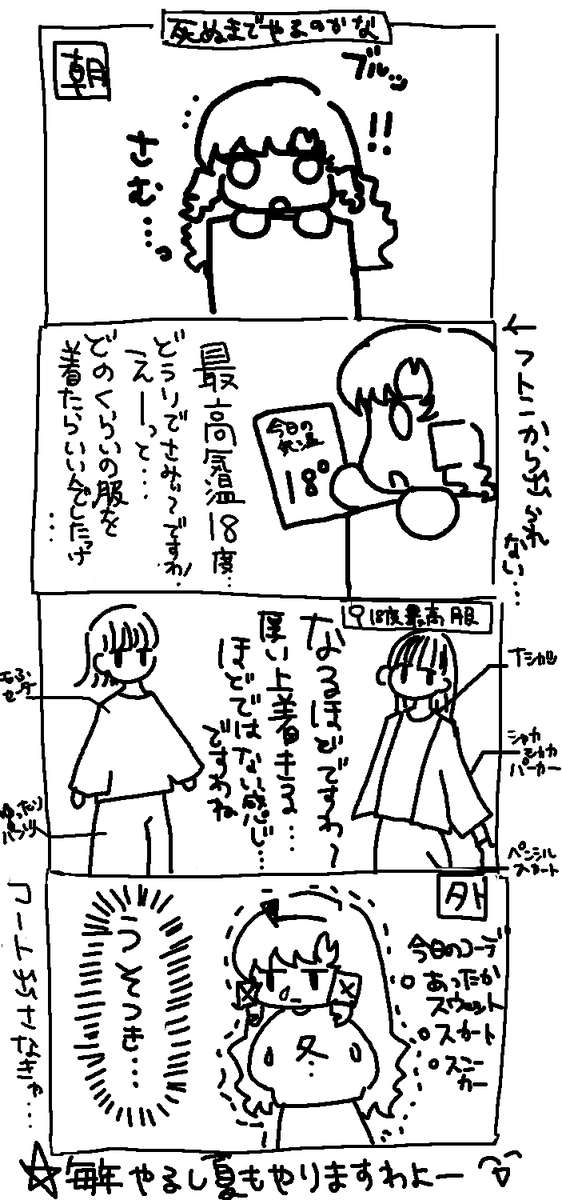 死ぬまでやるのかな
朝
ブルッ
!!
…
さむ…っ
←フトンから出られ
ない…
今日の
気温
18°
最高気温18度…
どうりでさみぃ〜ですわ!
えーっと…
どのくらいの服を
着たらいいんでしたっけ
…
18度最高服
Tシャツ
シャカ
シャカ
パーカー
ペンシル
スカート
なるほどですわ〜
厚い上着きる…
ほどではない感じ…
ですわね
ゆったり
パンツ
外
今日のコーデ
○あったか
スウェット
○スカート
○スニー
カー
冬
…
うそつき…
コート出さなきゃ…
☆毎年やるし夏もやりますわよー